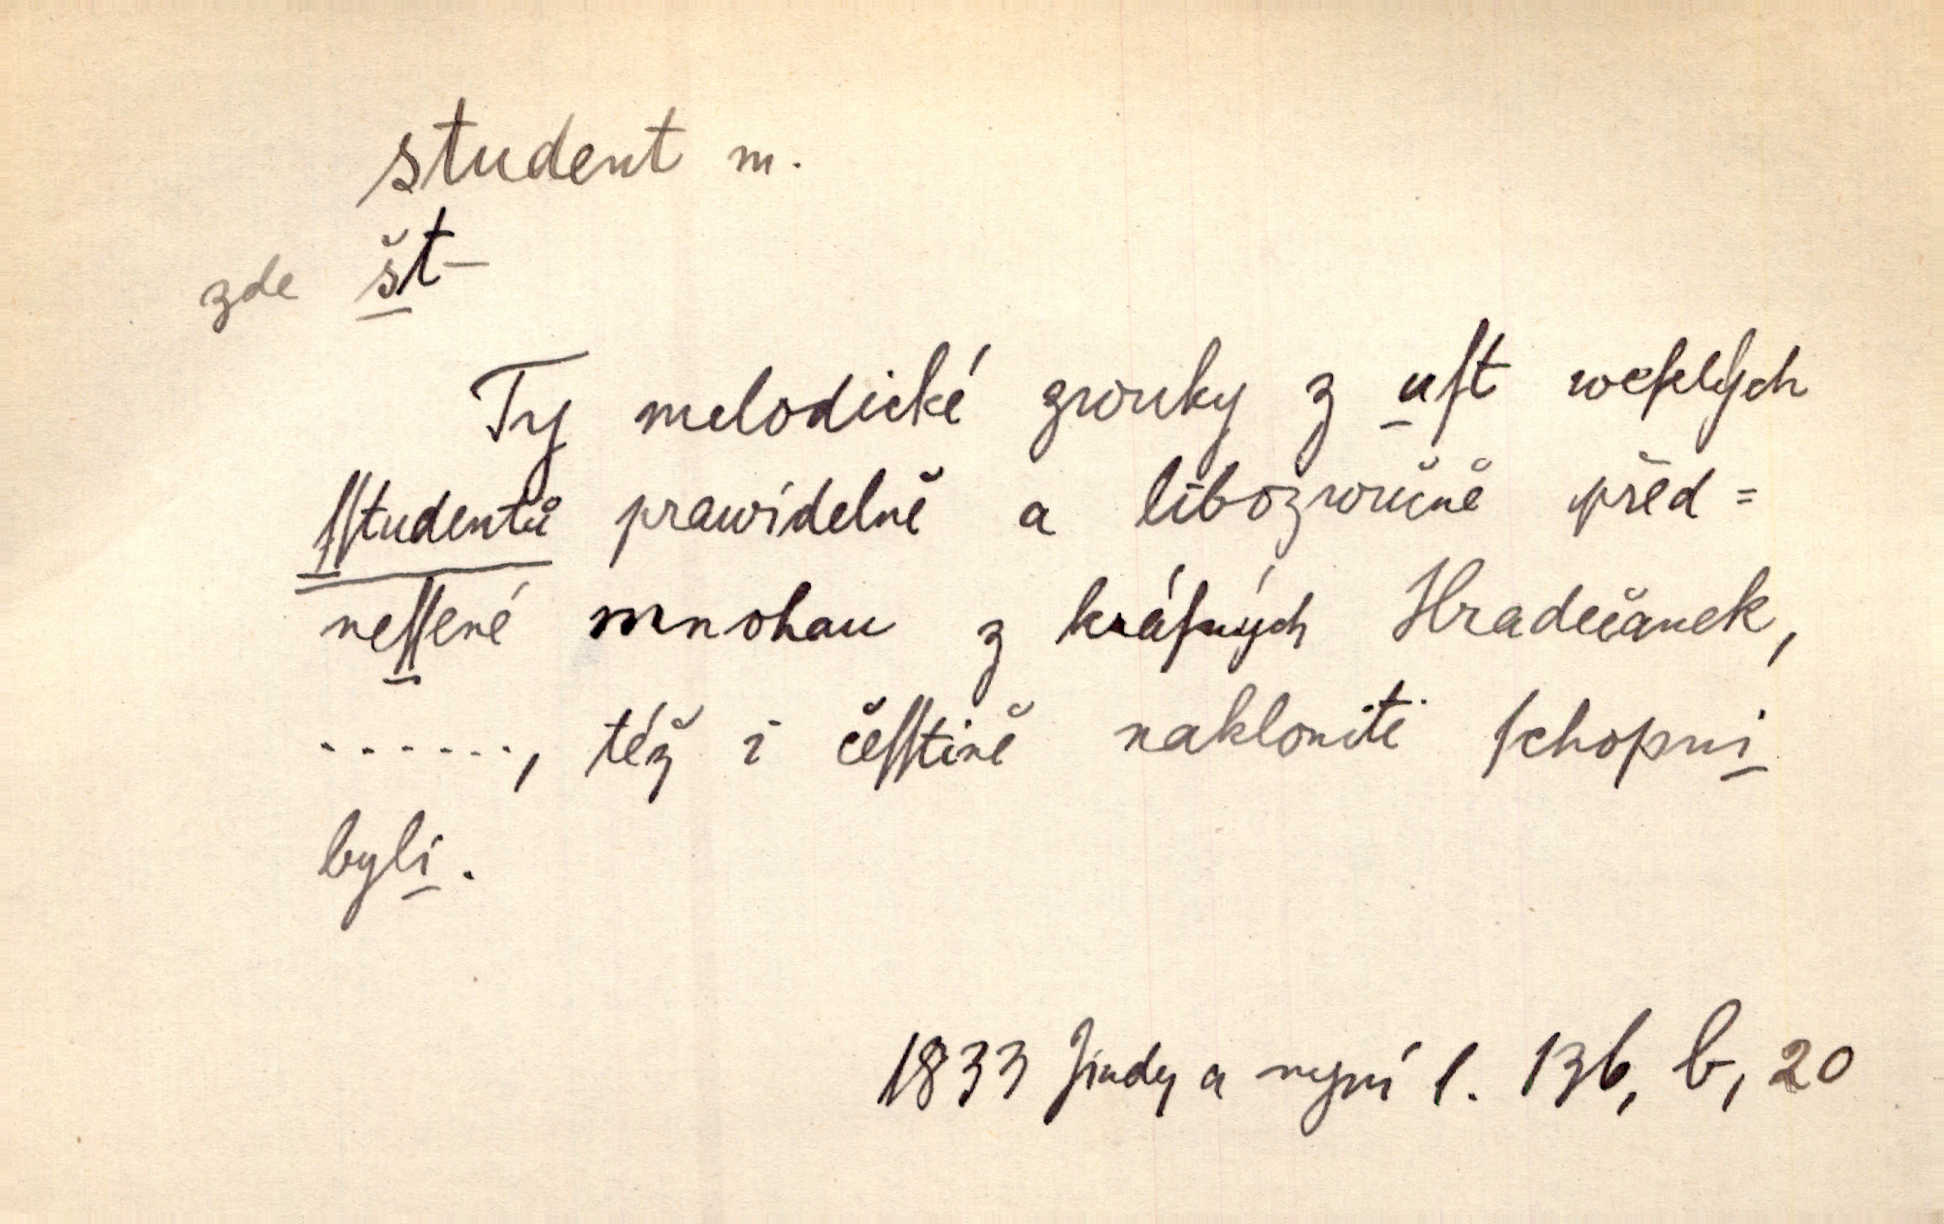 student m.
zde št-
Ty melodické zwuky z uſt weſelých
ſſtudentů prawidelně a libozwučně před=
neſſené mnohau z kráſných Hradečanek,
......., též i čeſſtině nakloniti ſchopni
byli.
1833 Jindy a nyní l. 136, b, 20